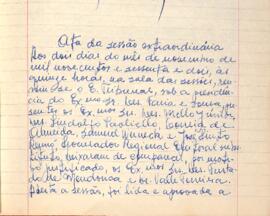 Ata da sessão extraordinária
Aos dois dias do mês de novembro de
mil novecentos e sessenta e dois, às
quinze horas, na sala das sessões, reu-
niu-se o E. Tribunal, sob a presidên-
cia do Ex mo Sr. Des. Faria e Sousa, pre-
sentes os Ex. mos Srs. Des. Mello Júnior,
Drs. Lindolfo Paoliello, Corrêa de
Almeida, Samuel e José
Procurador Regional Eleitoral subs-
tituto. Deixaram de comparecer, por moti-
vo justificado, os Ex mos Srs. Des.
de Mendonça e
Aberta a sessão, foi lida e aprovada a